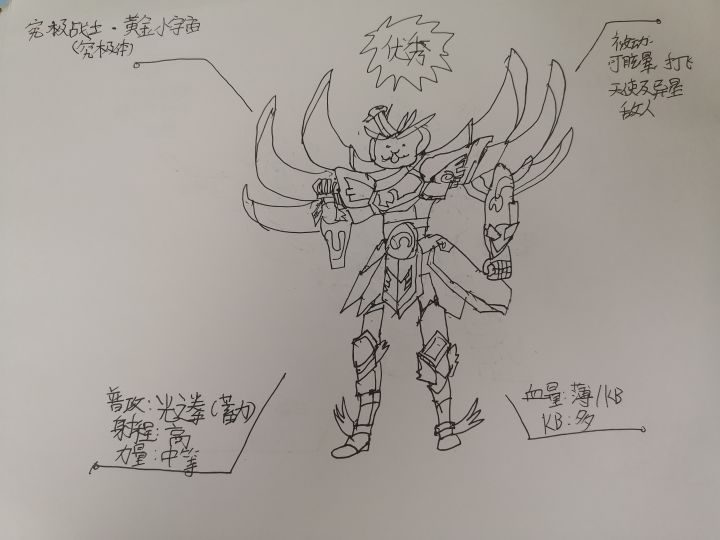 究极战士·黄金小宇宙
(究极体)
优秀
被动:
可眩晕、打飞
天使及异星
敌人
普攻:光之拳(蓄力)
射程:高
力量:中等
血量:薄/KB
KB:多